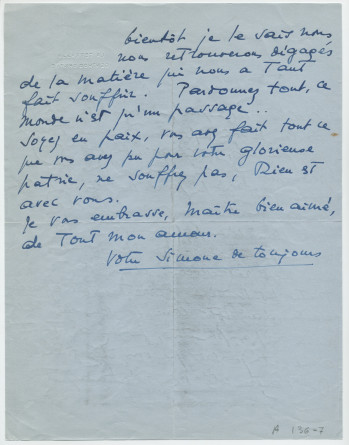 bientôt je le sais nous
nous retrouverons dégagés
de la matière qui nous a tant
fait souffrir. Pardonnez tout, ce
monde n'est qu'un passage..
Soyez en paix, vous avez fait tout ce
que vous avez pu pour votre glorieuse
patrie, ne souffrez pas, Dieu est
avec vous.
Je vous embrasse, Maître bien aimé,
de Tout mon amour.
Votre Simone de toujours
A 136-7